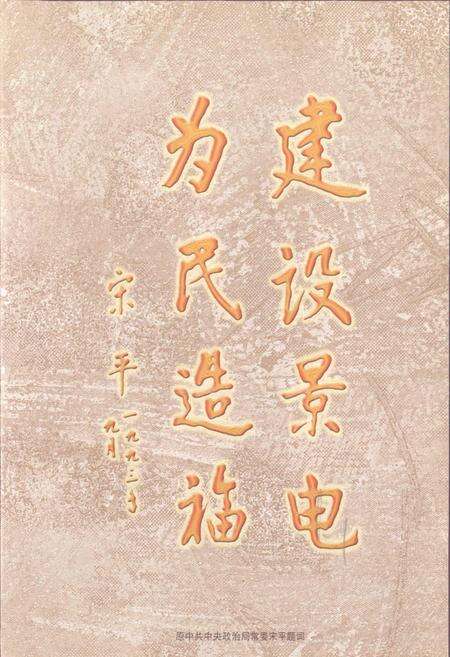 建设景电
为民造福
宋平
一九九三年
九月
原中共中央政治局常委宋平题词